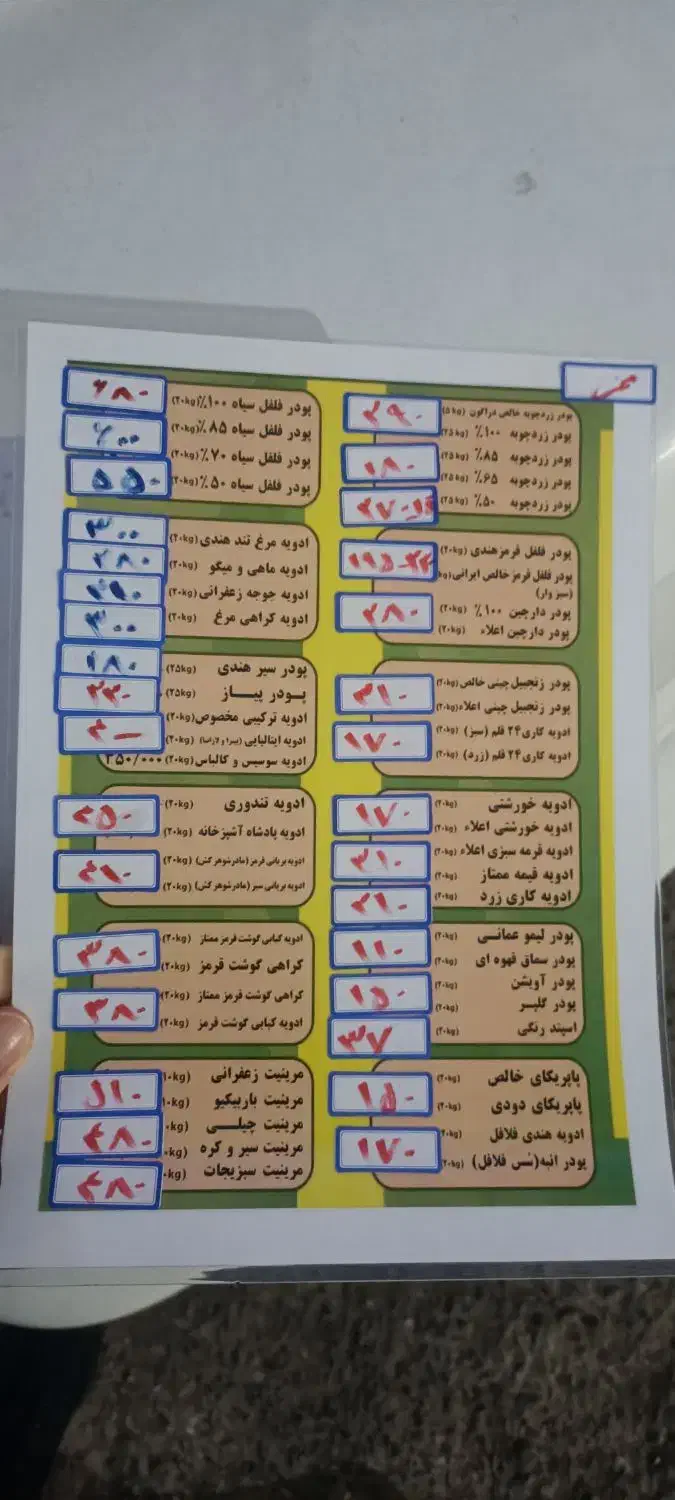 پودر زردچوبه خالص دراگون (۵kg) ۲۹۰
پودر زردچوبه ۱۰۰٪ (۲۵kg)
پودر زردچوبه ۸۵٪ (۲۵kg) ۱۸۰
پودر زردچوبه ۶۵٪ (۲۵kg)
پودر زردچوبه ۵۰٪ (۲۵kg)
پودر فلفل قرمزهندی (۲۰kg)
پودر فلفل قرمز خالص ایرانی
(سبز وار)
پودر دارچین ۱۰۰٪ (۲۰kg) ۲۸۰
پودر دارچین اعلاء (۲۰kg)
پودر زنجبیل چینی خالص (۲۰kg) ۳۱۰
پودر زنجبیل چینی اعلاء (۲۰kg)
ادویه کاری ۲۴ قلم (سبز) (۲۰kg) ۱۷۰
ادویه کاری ۲۴ قلم (زرد) (۲۰kg)
ادویه خورشتی (۲۰kg) ۱۷۰
ادویه خورشتی اعلاء (۲۰kg)
ادویه قرمه سبزی اعلاء (۲۰kg) ۳۱۰
ادویه قیمه ممتاز (۲۰kg)
ادویه کاری زرد (۲۰kg) ۲۱۰
پودر لیمو عمانی (۲۰kg) ۱۱۰
پودر سماق قهوه ای (۲۰kg)
پودر آویشن (۲۰kg) ۱۵۰
پودر گلپر (۲۰kg)
اسپند رنگی (۲۰kg) ۳۷
پاپریکای خالص (۲۰kg) ۱۵۰
پاپریکای دودی (۲۰kg)
ادویه هندی فلافل (۲۰kg)
پودر انبه(سس فلافل) (۲۰kg) ۱۷۰
پودر فلفل سیاه ۱۰۰٪ (۲۰kg) ۶۸۰
پودر فلفل سیاه ۸۵٪ (۲۰kg) ۶۰۰
پودر فلفل سیاه ۷۰٪ (۲۰kg)
پودر فلفل سیاه ۵۰٪ (۲۰kg) ۵۵۰
ادویه مرغ تند هندی (۲۰kg) ۳۰۰
ادویه ماهی و میگو (۲۰kg) ۲۸۰
ادویه جوجه زعفرانی (۲۰kg) ۲۹۰
ادویه کراهی مرغ (۲۰kg) ۳۰۰
پودر سیر هندی (۲۵kg) ۱۸۰
پودر پیاز (۲۵kg)
ادویه ترکیبی مخصوص (۲۰kg)
ادویه ایتالیایی (پیتزا و لازانیا) (۲۰kg)
ادویه سوسیس و کالباس (۲۰kg) ۲۵۰/۰۰۰
ادویه تندوری (۲۰kg) ۲۵۰
ادویه پادشاه آشپزخانه (۲۰kg)
ادویه بریانی قرمز (مادرشوهرکش) (۲۰kg) ۲۱۰
ادویه بریانی سبز (مادرشوهرکش) (۲۰kg)
ادویه کبابی گوشت قرمز ممتاز (۲۰kg) ۳۸۰
کراهی گوشت قرمز (۲۰kg)
کراهی گوشت قرمز ممتاز (۲۰kg) ۳۸۰
ادویه کبابی گوشت قرمز (۲۰kg)
مرینیت زعفرانی (۱۰kg)
مرینیت باربیکیو
مرینیت چیلی ۴۸۰
مرینیت سیر و کره
مرینیت سبزیجات ۴۸۰